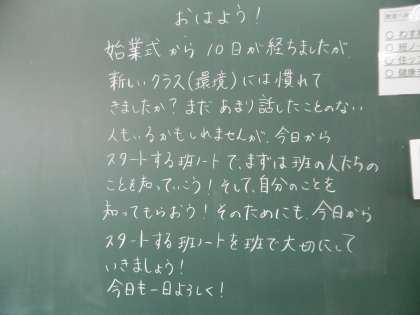 おはよう!
始業式から10日が経ちましたが、
新しいクラス(環境)には慣れて
きましたか?まだあまり話したことのない
人もいるかもしれませんが、今日から
スタートする班ノートで、まずは班の人たちの
ことを知っていこう!そして、自分のことを
知ってもらおう!そのためにも、今日から
スタートする班ノートを班で大切にして
いきましょう!
今日も一日よろしく!